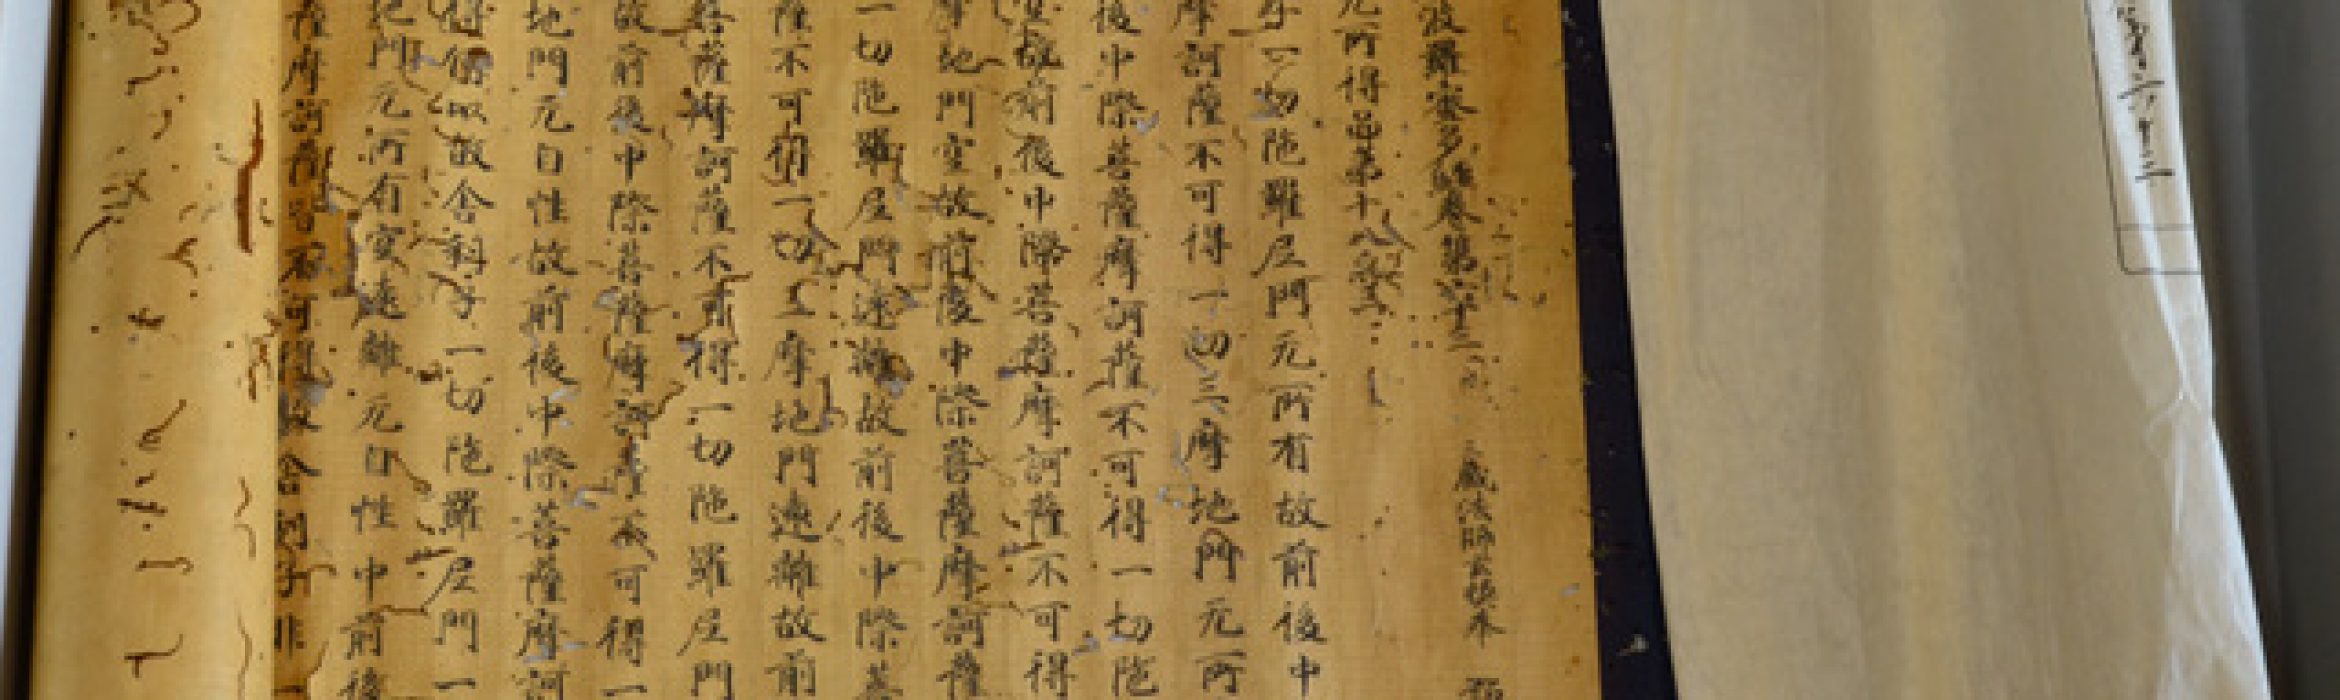 六十三
波羅蜜多經卷第六十三 三藏法師玄奘奉
无所得品第十八之三
子一切陁羅尼門无所有故前後中
摩訶薩不可得一切三摩地門无所
後中際菩薩摩訶薩不可得一切陁
空故前後中際菩薩摩訶薩不可得
摩地門空故前後中際菩薩摩訶薩
一切陁羅尼門遠離故前後中際菩
薩不可得一切三摩地門遠離故前
菩薩摩訶薩不可得一切陁羅尼門
故前後中際菩薩摩訶薩不可得一
地門无自性故前後中際菩薩摩訶
得何以故舍利子一切陁羅尼門一
地門无所有空遠離无自性中前後
薩摩訶薩皆不可得故舍利子非一